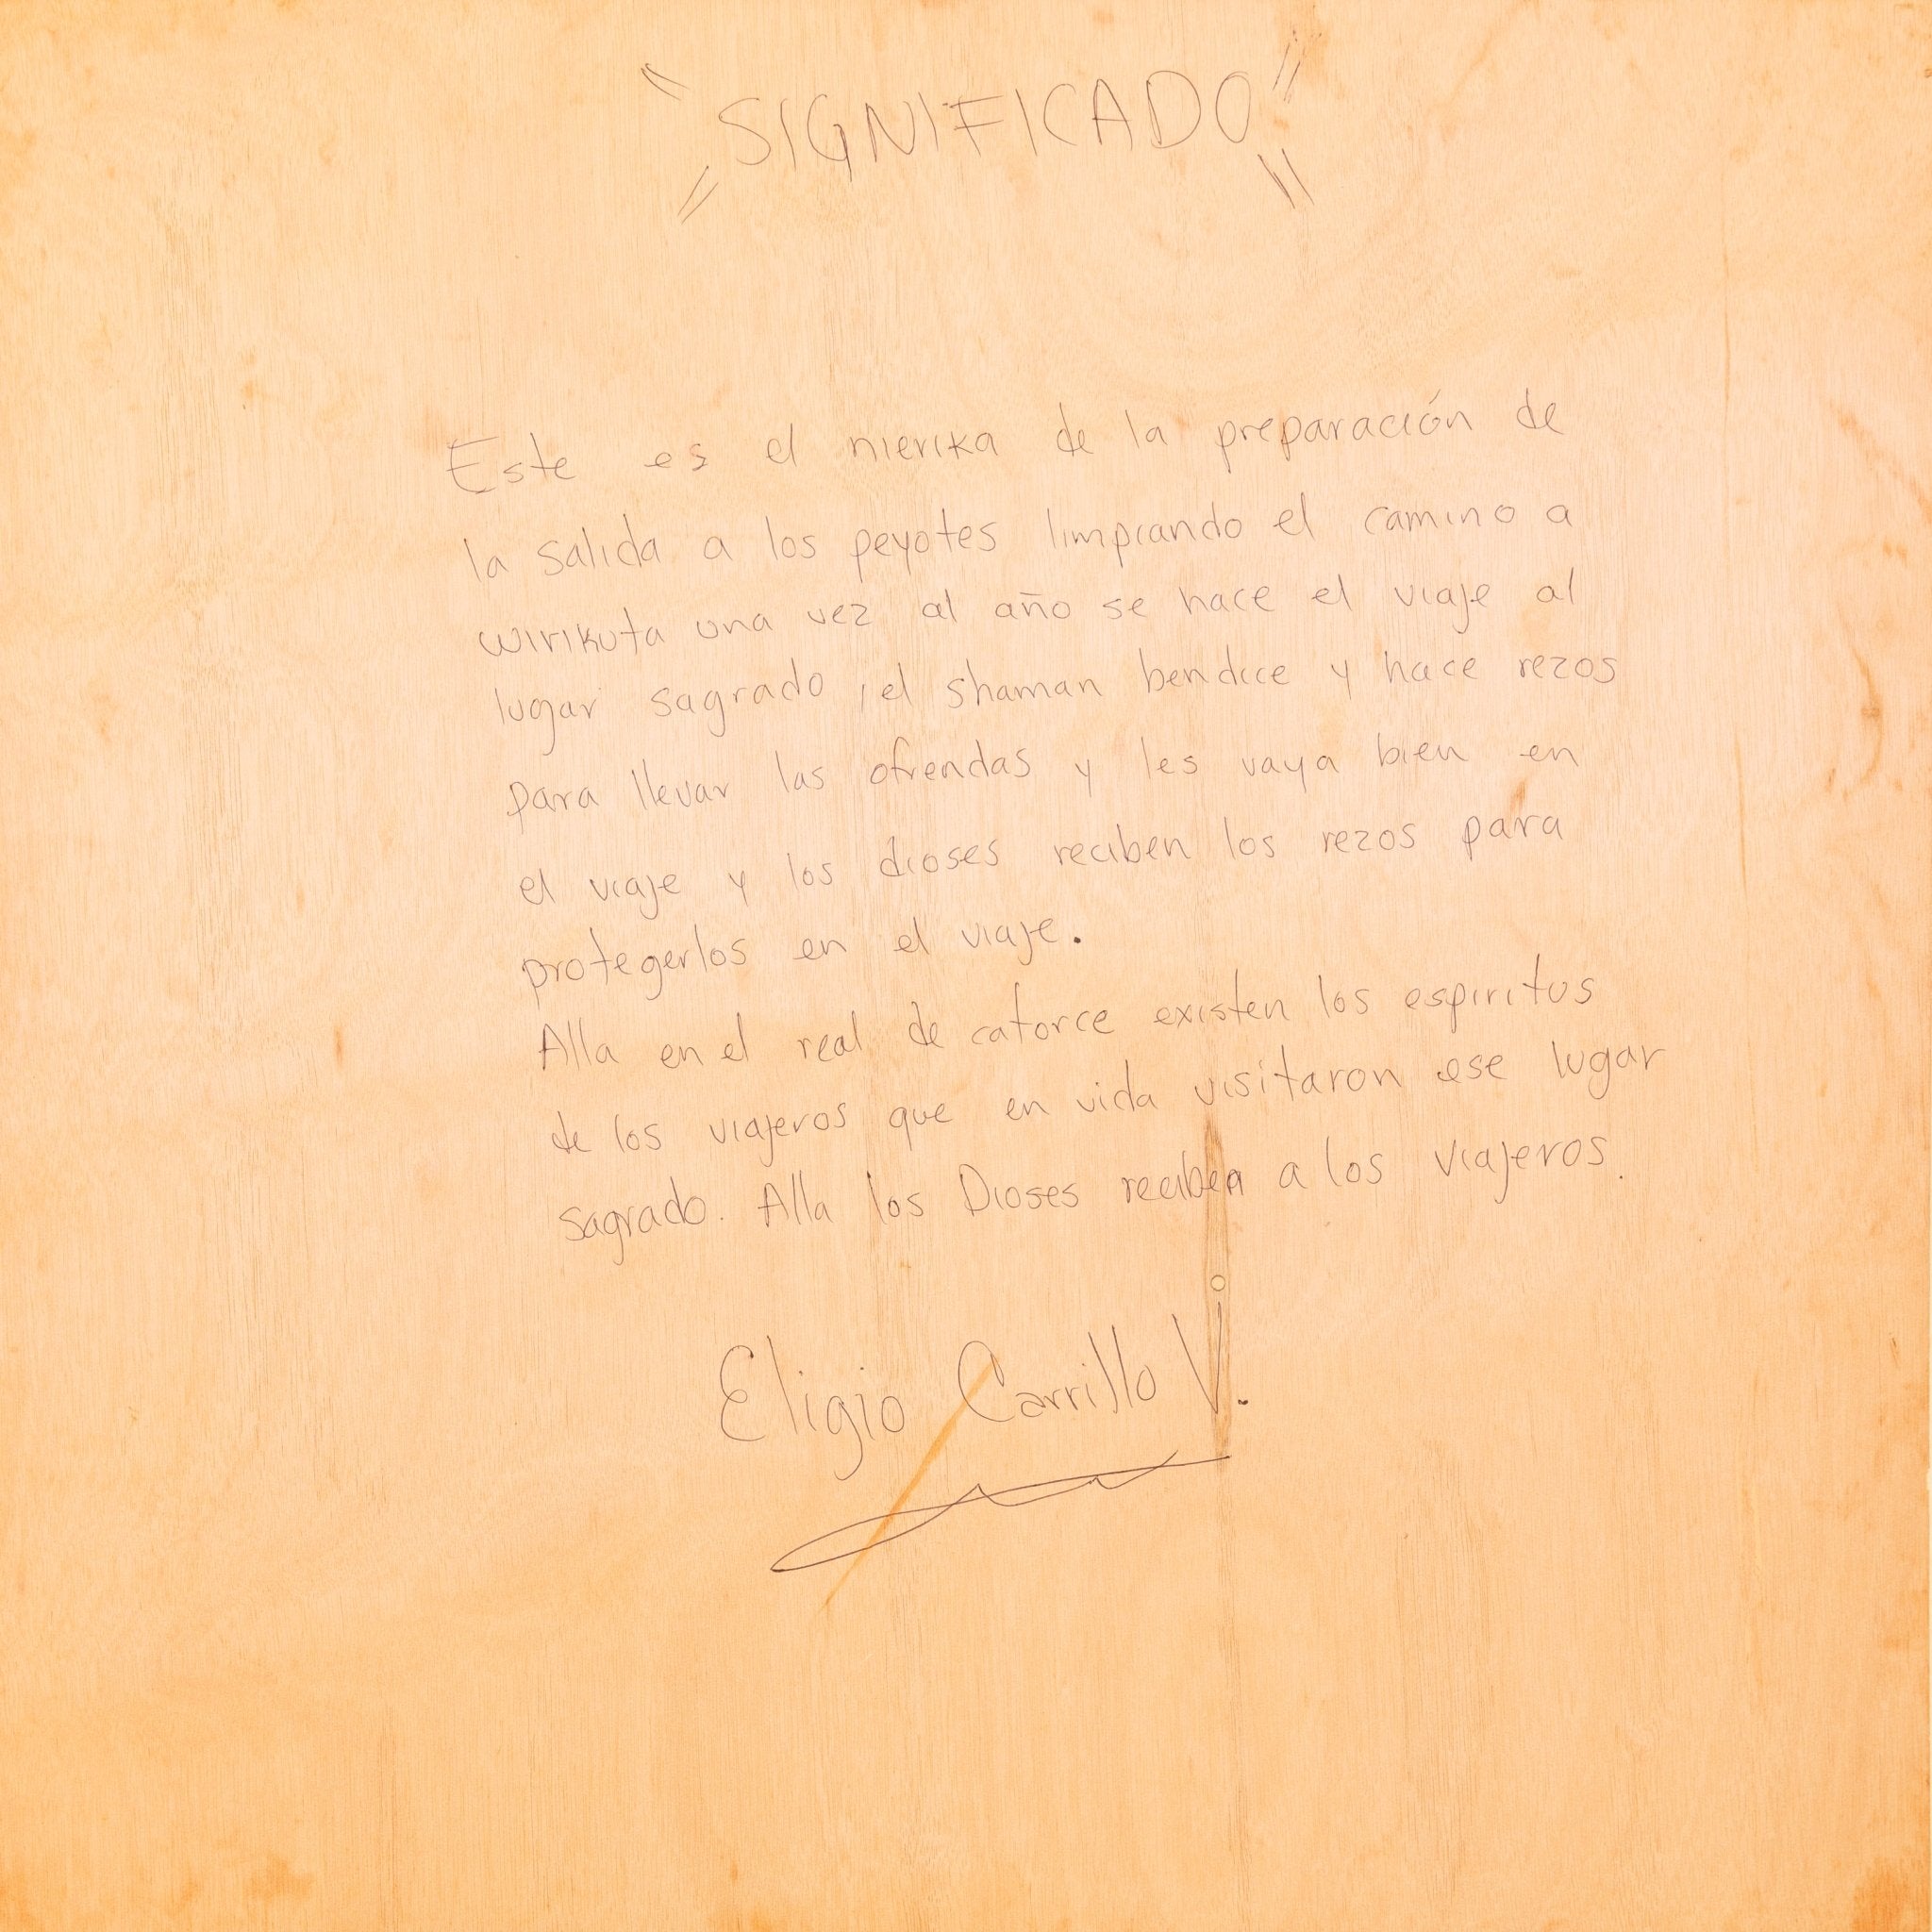 "SIGNIFICADO"
Este es el nierika de la preparación de
la salida a los peyotes limpiando el camino a
wirikuta una vez al año se hace el viaje al
lugar sagrado, el shaman bendice y hace rezos
para llevar las ofrendas y les vaya bien en
el viaje y los dioses reciben los rezos para
protegerlos en el viaje.
Alla en el real de catorce existen los espiritus
de los viajeros que en vida visitaron ese lugar
sagrado. Alla los Dioses reciben a los viajeros.
Eligio Carrillo V.